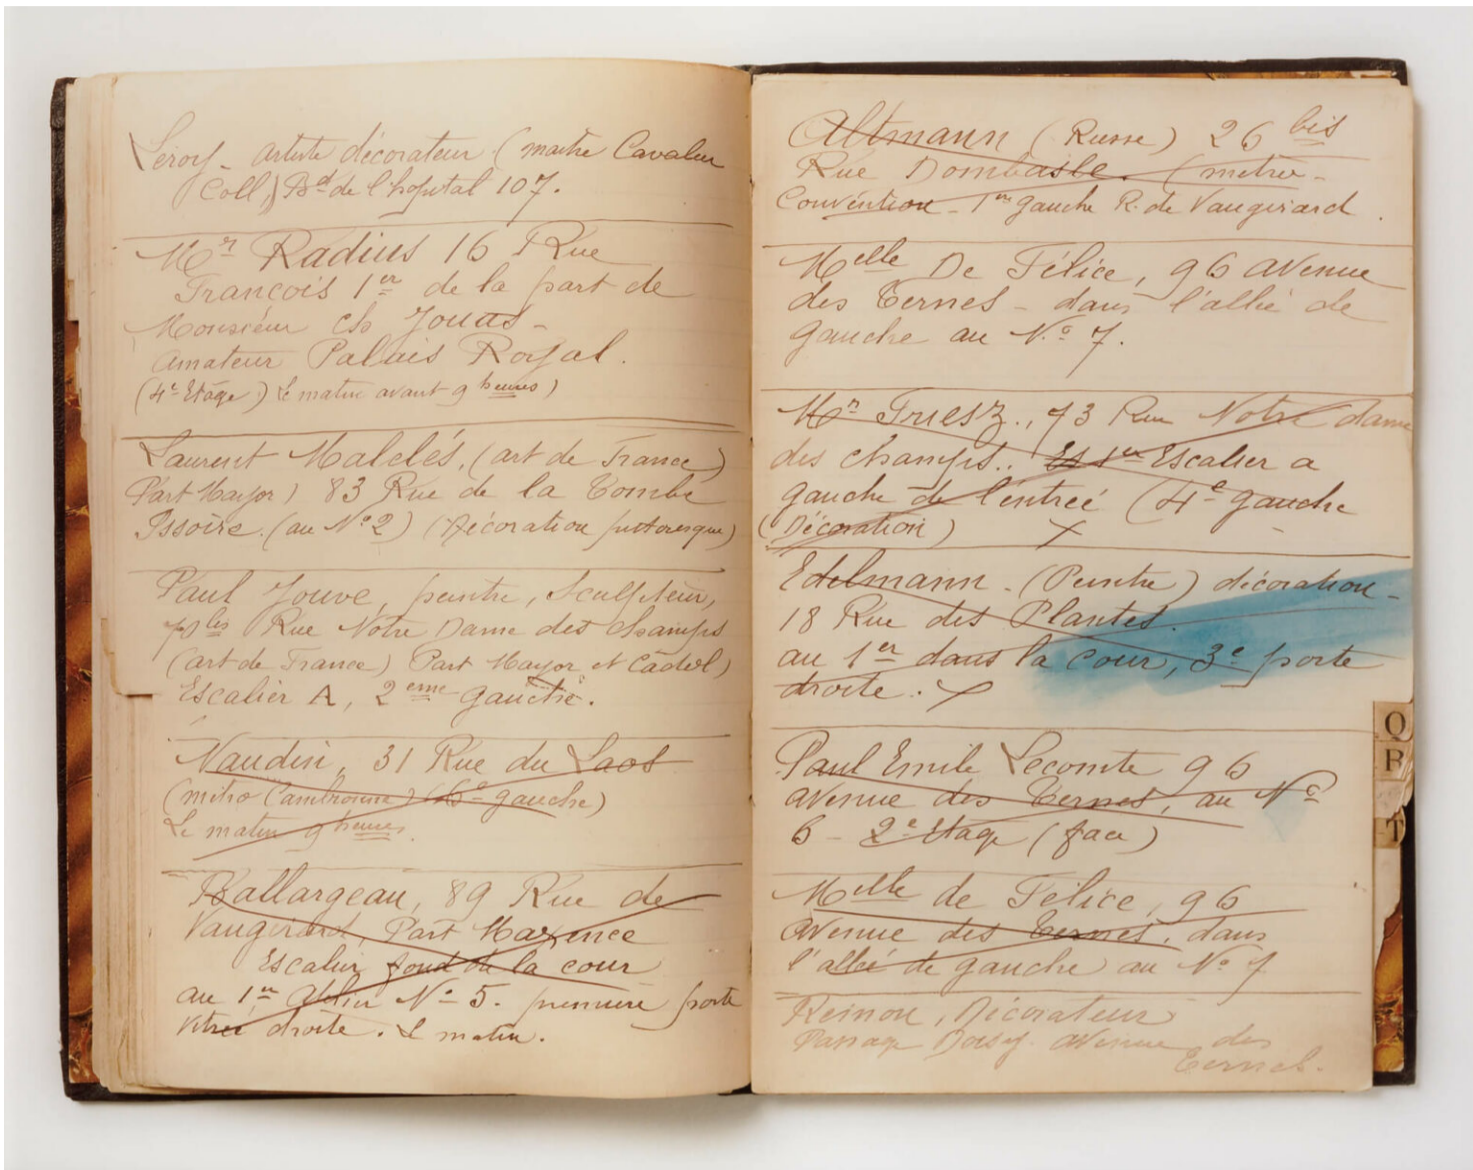 Leroy - artiste décorateur (maitre Cavalier
Coll) Bd de l'hopital 107.
Mr Radius 16 Rue
François 1er de la part de
Monsieur Ch Jouas -
amateur Palais Royal.
(4e Etage) Le matin avant 9 heures)
Laurent Malclés, (art de France)
Part Mayor) 83 Rue de la Tombe
Issoire. (au No 2) (Décoration pittoresque)
Paul Jouve, peintre, Sculpteur,
71 bis Rue Notre Dame des champs
(art de France) Part Mayor et Cadel)
Escalier A, 2eme gauche.
Naudin, 31 Rue du Laos
(métro Cambronne) (6e gauche)
Le matin 9 heures.
Ballargeau, 89 Rue de
Vaugirard, Part Maxence
Escalier fond de la cour
au 1er Atelier No 5. premiere porte
vitrée droite. Le matin.
Altmann (Russe) 26 bis
Rue Dombasle. (métro -
Convention - 1er gauche R. de Vaugirard.
Melle De Félice, 96 avenue
des Ternes - dans l'allée de
gauche au No 7.
Mr Friesz., 73 Rue Notre dame
des champs.. 1er Escalier a
gauche de l'entreé (4e gauche
(Décoration) X
Edelmann - (Peintre) décoration -
18 Rue des Plantes.
au 1er dans la cour, 3e porte
droite. X
Paul Emile Lecomte 96
avenue des Ternes, au No
6 - 2e Etage (face)
Melle de Félice, 96
avenue des Ternes. dans
l'allée de gauche au No 7
Reinou, Décorateur
Passage Doisy. avenue des
Ternes.
Q
R
T